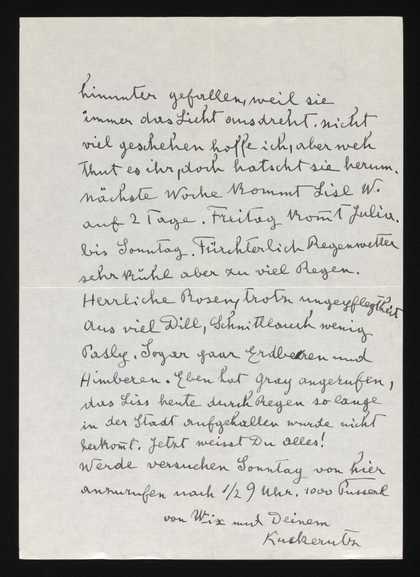 hinunter gefallen, weil sie
immer das Licht ausdreht. nicht
viel geschehen hoffe ich, aber weh
thut es ihr, doch hatscht sie herum.
nächste Woche kommt Lisl W.
auf 2 Tage. Freitag komt Julia.
bis Sonntag. Fürchterlich Regenwetter
sehr kühl aber zu viel Regen.
Herrliche Rosen, trotz ungepflegtheit
aus viel Dill, Schnittlauch wenig
Sogar paar Erdbeeren und
Himberen. Eben hat Gray angerufen,
das Liss heute durch Regen so lange
in der Stadt aufgehallen wurde nicht
Jetzt weisst Du alles!
Werde versuchen Sonntag von hier
anzurufen nach 1/2 9 Uhr. 1000 Pusserl
von Wix und Deinem